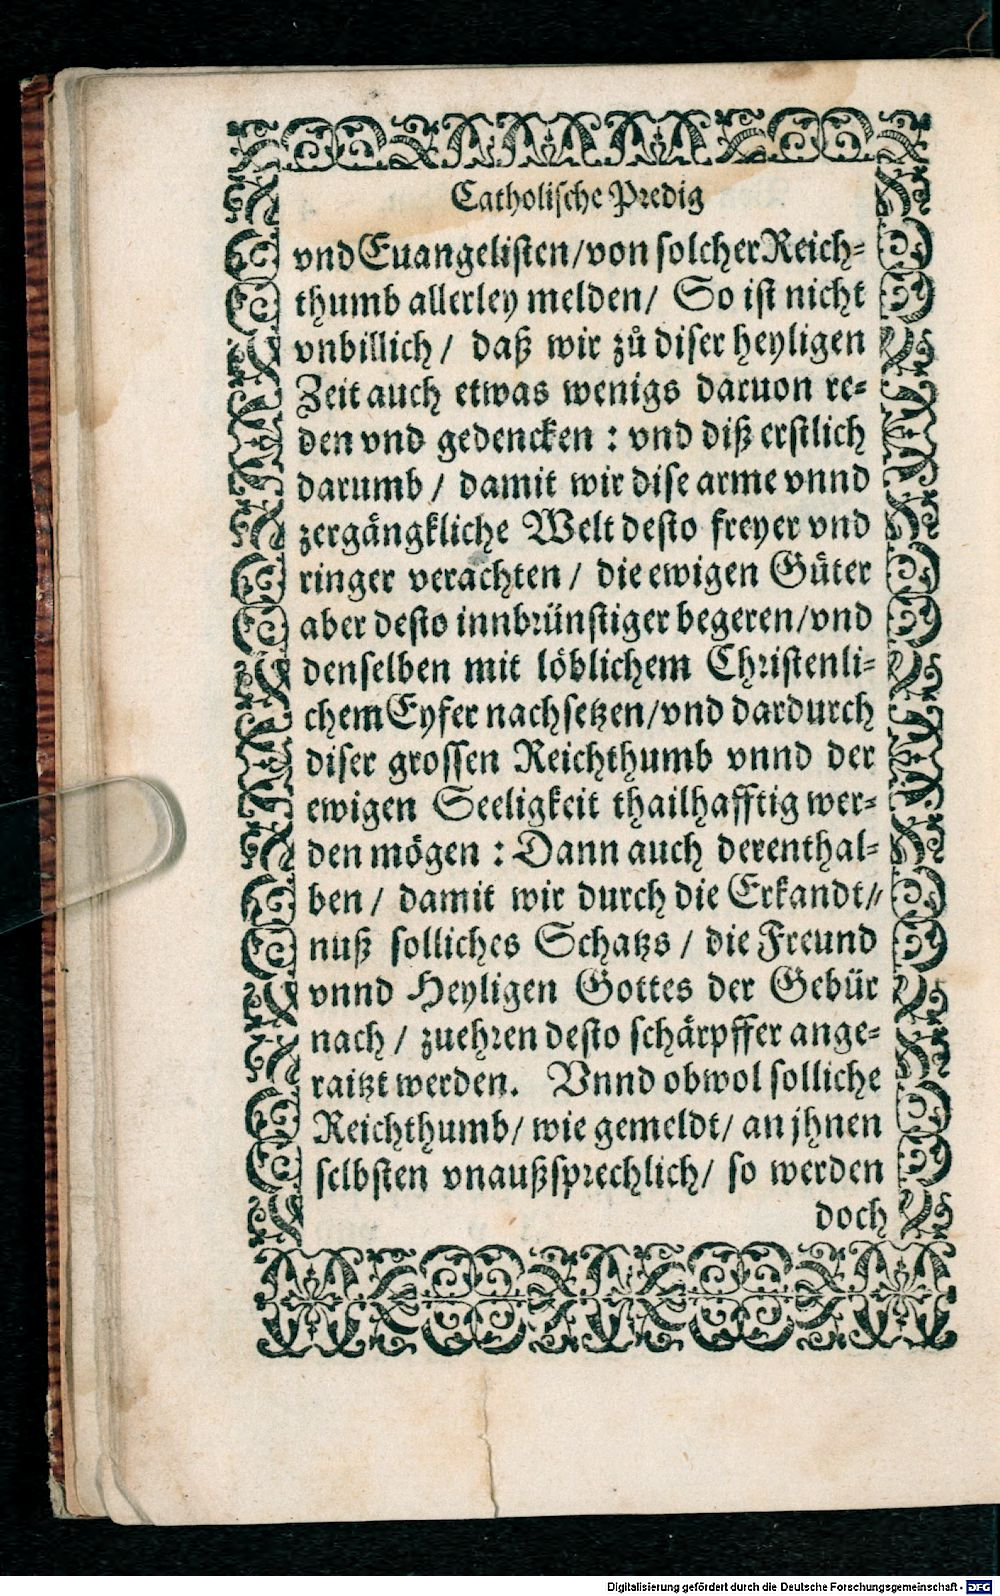 Catholische Predig
vnd Euangelisten/ von solcher Reich-
thumb allerley melden/ So ist nicht
vnbillich/ daß wir zuͦ diser heyligen
Zeit auch etwas wenigs daruon re-
den vnd gedencken : vnd diß erstlich
darumb/ damit wir dise arme vnnd
zergaͤngkliche Welt desto freyer vnd
ringer verachten/ die ewigen Guͤter
aber desto innbrünstiger begeren/ vnd
denselben mit loͤblichem Christenli-
chem Eyfer nachsetzen/ vnd dardurch
diser grossen Reichthumb vnnd der
ewigen Seeligkeit thailhafftig wer-
den moͤgen : Dann auch derenthal-
ben/ damit wir durch die Erkandt-
nuß solliches Schatzs/ die Freund
vnnd Heyligen Gottes der Gebür
nach/ zuehren desto schaͤrpffer ange-
raitzt werden. Vnnd obwol solliche
Reichthumb/ wie gemeldt/ an jhnen
selbsten vnaußsprechlich/ so werden
doch
Digitalisierung gefördert durch die Deutsche Forschungsgemeinschaft - DFG